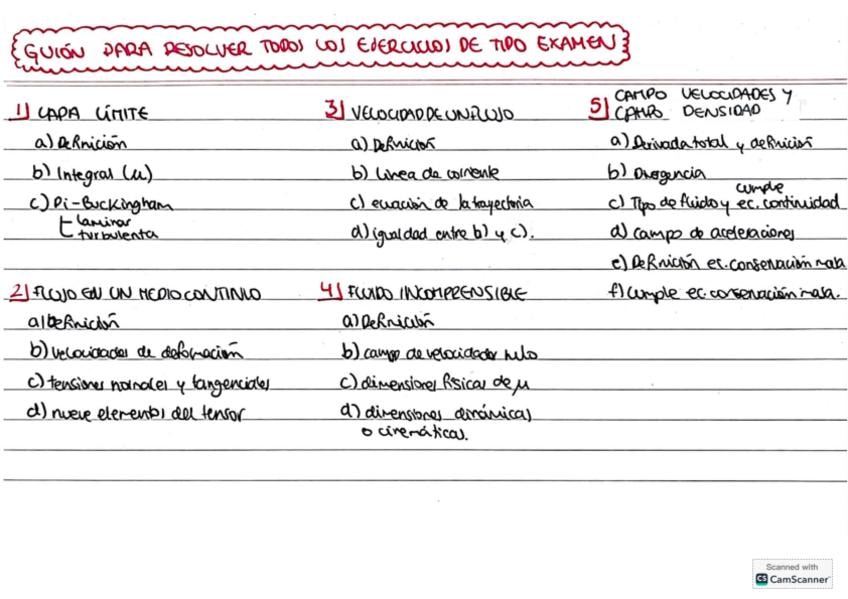 GUIÓN PARA RESOLVER TODOS LOS EJERCICIOS DE TIPO EXAMEN
1) CAPA LÍMITE
a) Definición
b) Integral (μ)
c) Pi-Buckingham
laminar
turbulenta
2) FLUJO EN UN MEDIO CONTINUO
a) Definición
b) velocidades de deformación
c) tensiones normales y tangenciales
d) nueve elementos del tensor
3) VELOCIDAD DE UN FLUJO
a) Definición
b) línea de corriente
c) ecuación de la trayectoria
d) igualdad entre b) y c).
4) FLUIDO INCOMPRENSIBLE
a) Definición
b) campo de velocidades nulo
c) dimensiones físicas de μ
d) dimensiones dinámicas
o cinemáticas.
5) CAMPO VELOCIDADES Y
CAMPO DENSIDAD
a) Derivada total y definición
b) Divergencia
c) Tipo de fluido y cumple ec. continuidad
d) campo de aceleraciones
e) Definición ec. conservación masa
f) Cumple ec. conservación masa.
Scanned with
CS CamScanner